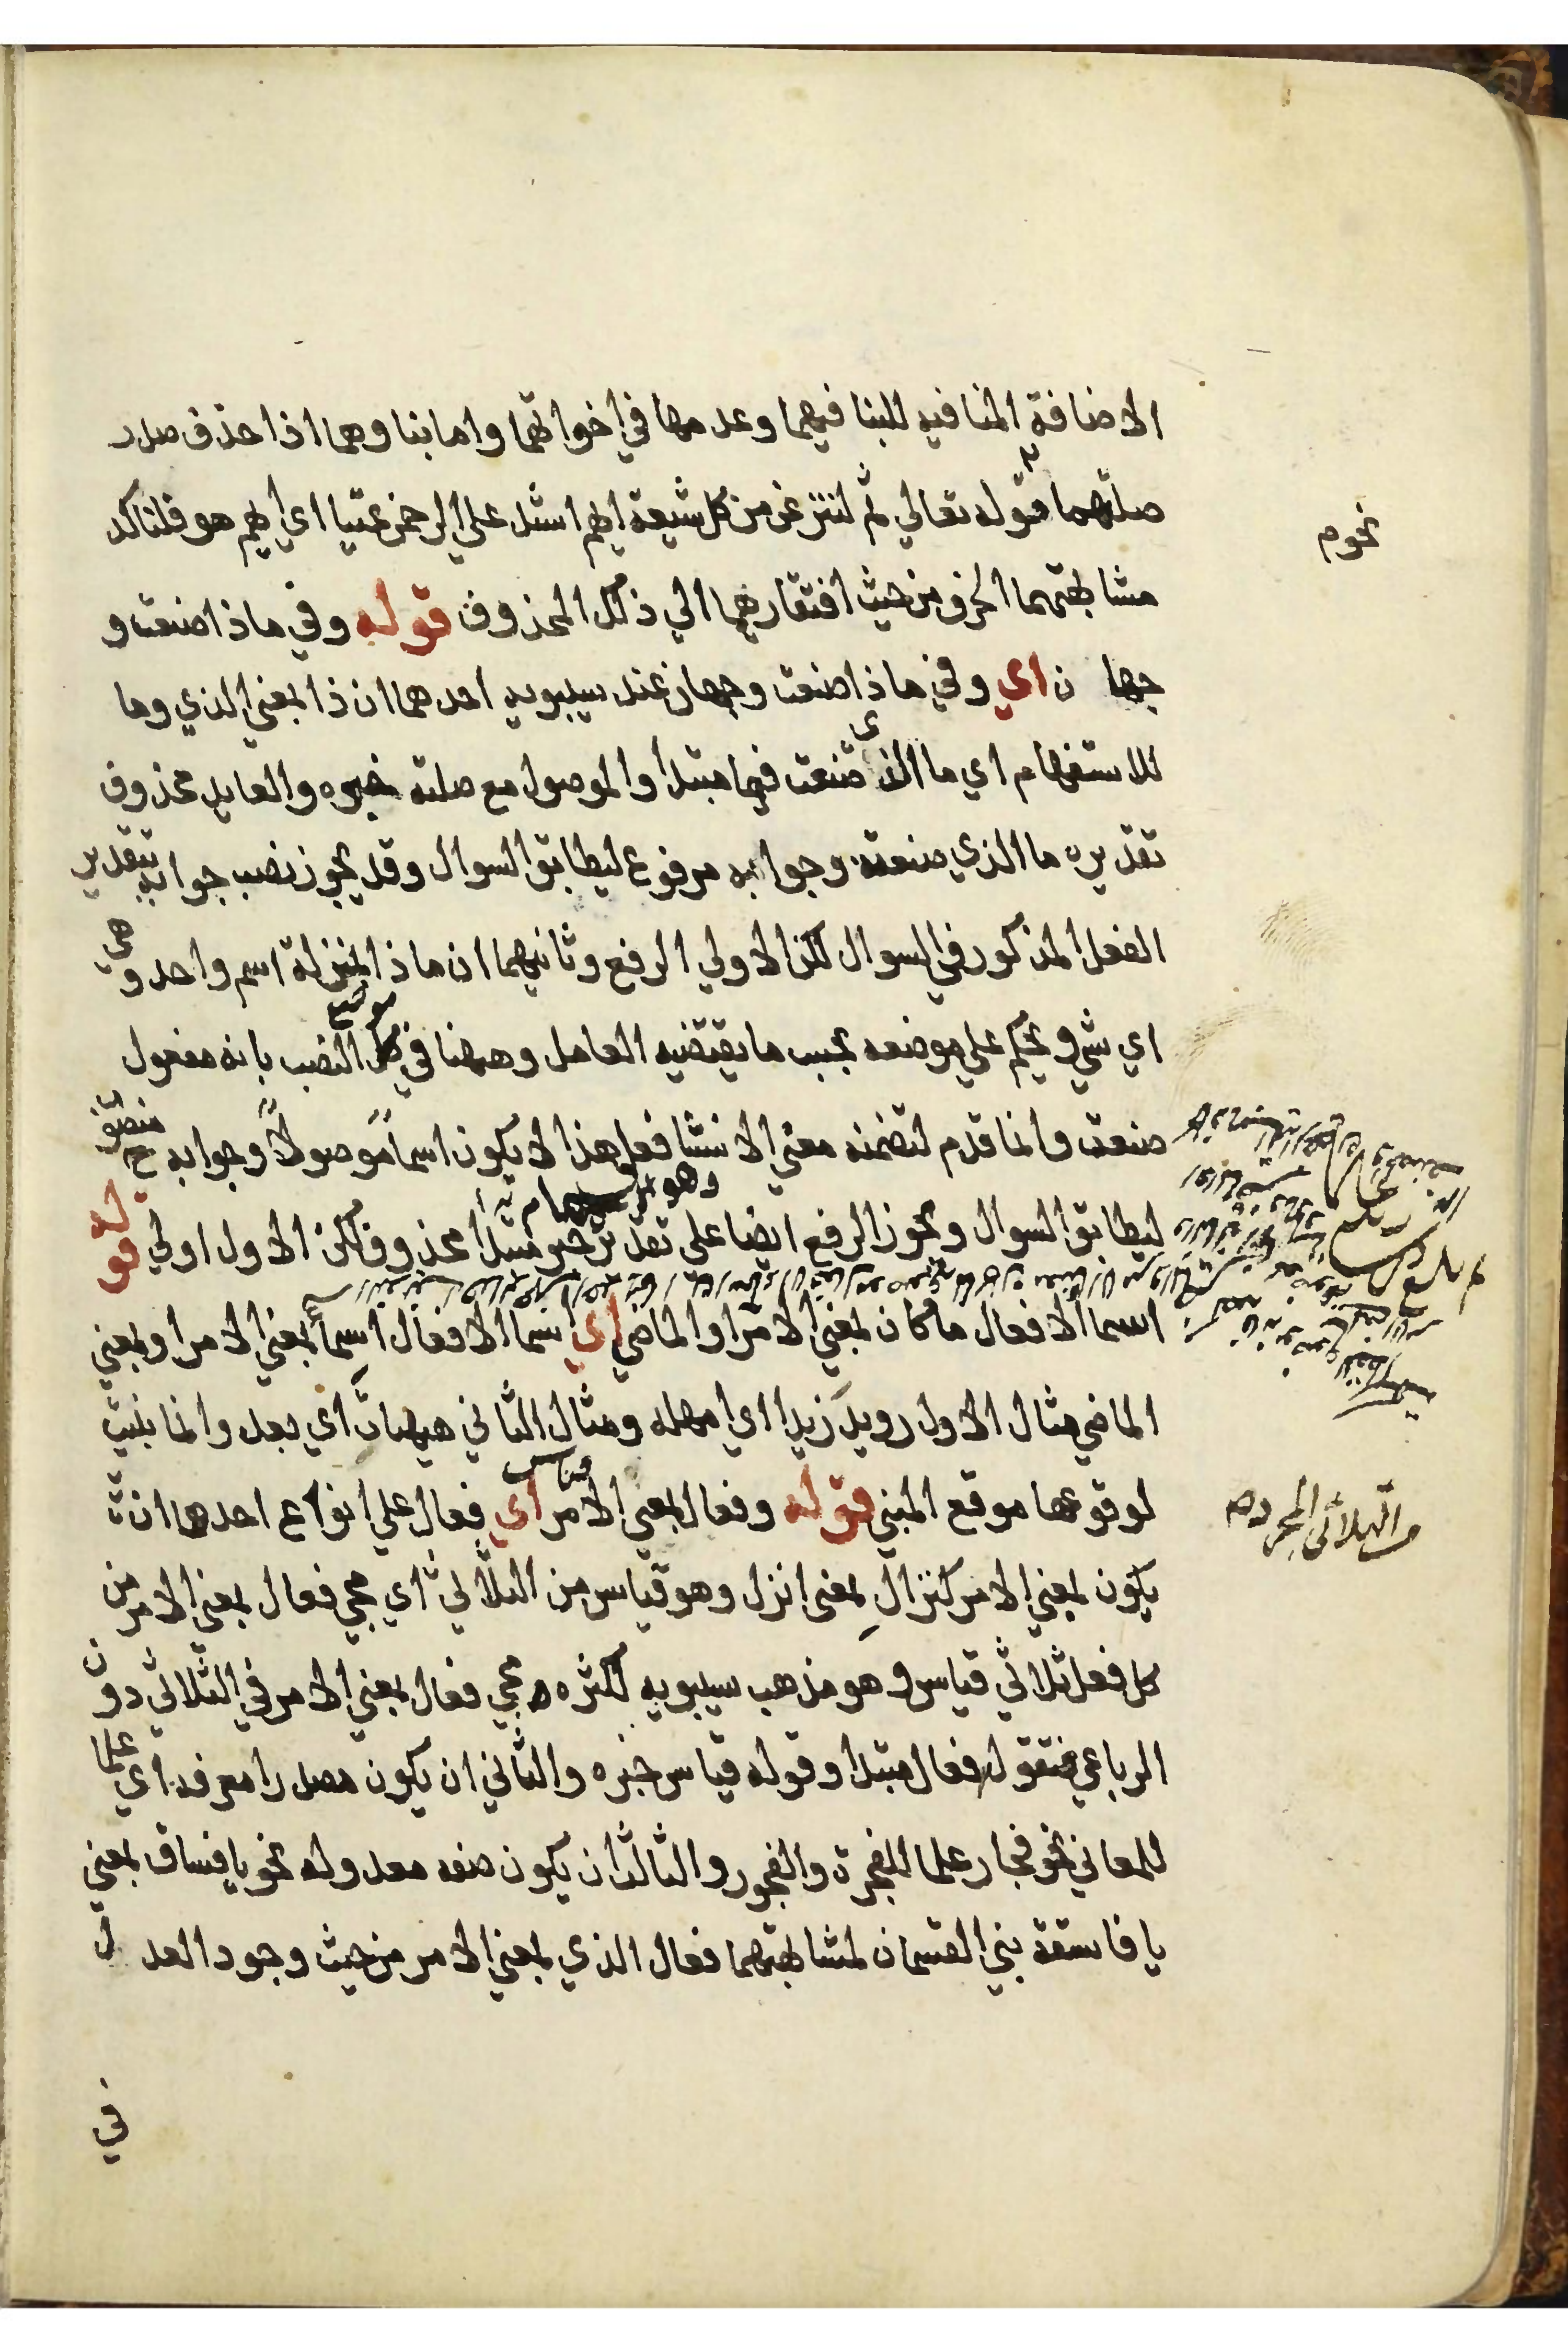 الاضافة المنافيه للبنا فيهما وعدمها في اخواتهما واما بناوهما اذا حذف صدر
صلتهما فقوله تعالي ثم لننزعن من كل شيعة ايهم اشد علي الرحمن عتيا اي ايهم هو فلتاكد
نحو م
مشابهتهما الحرف من حيث افتقارهما الي ذلك المحذوف قوله وفي ماذا صنعت و
جها ن اي وفي ماذا صنعت وجهان عند سيبويه احدهما ان ذا بمعني الذي وما
للاستفهام اي ما الذي صنعت فما مبتدا والموصول مع صلته خبره والعايد محذوف
تقديره ما الذي صنعته وجوابه مرفوع ليطابق السوال وقد يجوز نصب جوابه بتقدير
الفعل المذكور في السوال لكن الاولي الرفع وثانيهما ان ماذا بمنزلة اسم واحد وهي
اي شي ويحكم علي موضعه بحسب ما يقتضيه العامل وههنا في موضع النصب بانه مفعول
صنعت وانما قدم لتضمنه معني الانشا فعلي هذا لا يكون اسما موصولا وجوابه ح منصوب
ليطابق السوال ويجوز الرفع ايضا علي تقدير خبر مبتدا محذوف لكن الاول اولي قوله
وهو
اسما الافعال ما كان بمعني الامر او الماضي اي اسما الافعال اسما بمعني الامر او بمعني
الماضي مثال الاول رويد زيدا اي امهله ومثال الثاني هيهات اي بعد وانما بنيت
لوقوعها موقع المبني قوله وفعال بمعني الامر قياس اي فعال علي انواع احدها ان
من الثلاثي المجرد صح
يكون بمعني الامر كنزال بمعني انزل وهو قياس من الثلاثي اي مجي فعال بمعني الامر من
كل فعل ثلاثي قياس وهو مذهب سيبويه لكثره مجي فعال بمعني الامر في الثلاثي دون
الرباعي فتقول فعال مبتدا وقوله قياس خبره والثاني ان يكون مصدرا معرفه اي علما
للمعاني نحو فجار علما للفجرة والفجور والثالث ان يكون صفه معدوله نحو يا فساق بمعني
يا فاسقة بني القسمان لمشابهتهما فعال الذي بمعني الامر من حيث وجود العدل
في